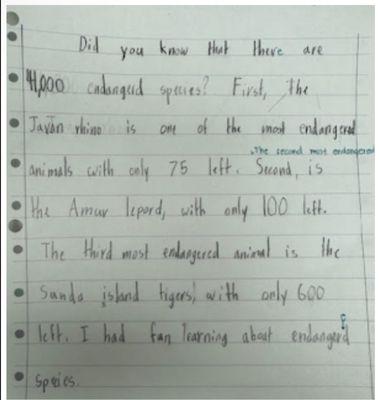 Did you know that there are
41,000 endangerd species? First, the
Javan rhino is one of the most endangered
,The second most endangered
animals with only 75 left. Second, is
the Amur lepord, with only 100 left.
The third most endangered animal is the
Sunda island tigers, with only 600
left. I had fun learning about endangerd
e
species.